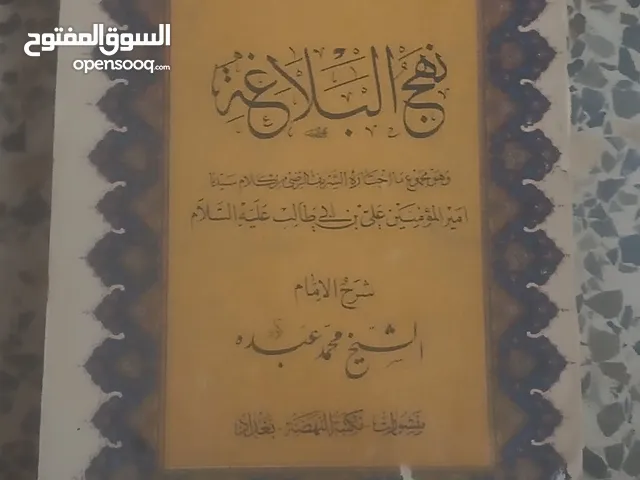 السوق المفتوح
opensooq.com
نهج البلاغة
وهو مجموع ما اختاره الشريف الرضي من كلام سيدنا
امير المؤمنين علي بن ابي طالب عليه السلام
شرح الامام
الشيخ محمد عبده
منشورات - مكتبة النهضة - بغداد